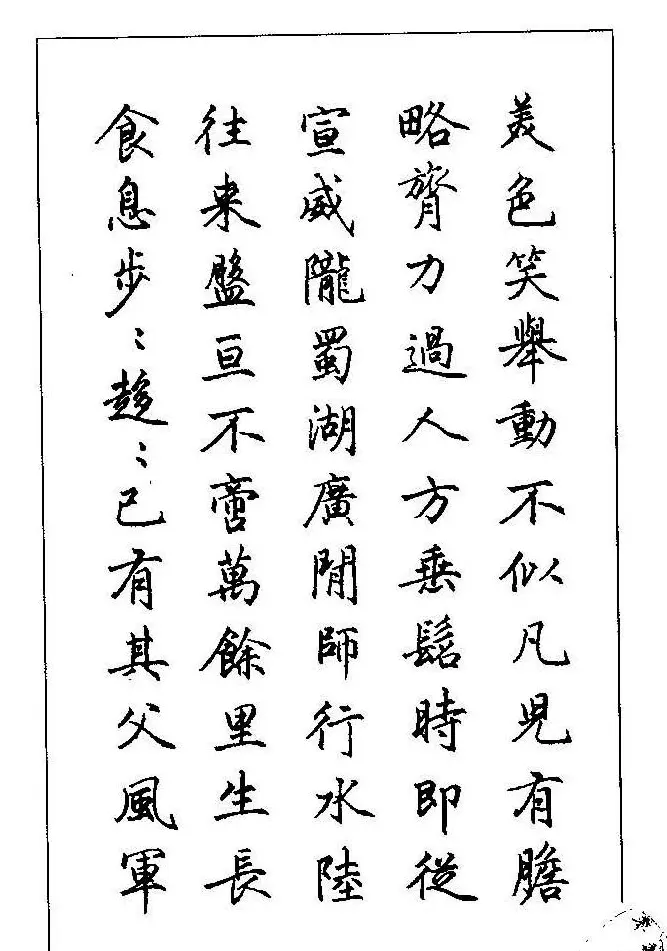 美色笑舉動不似凡兒有膽
略膂力過人方垂髫時即從
宣威隴蜀湖廣間師行水陸
往来盤亘不啻萬餘里生長
食息步〻趍〻已有其父風軍